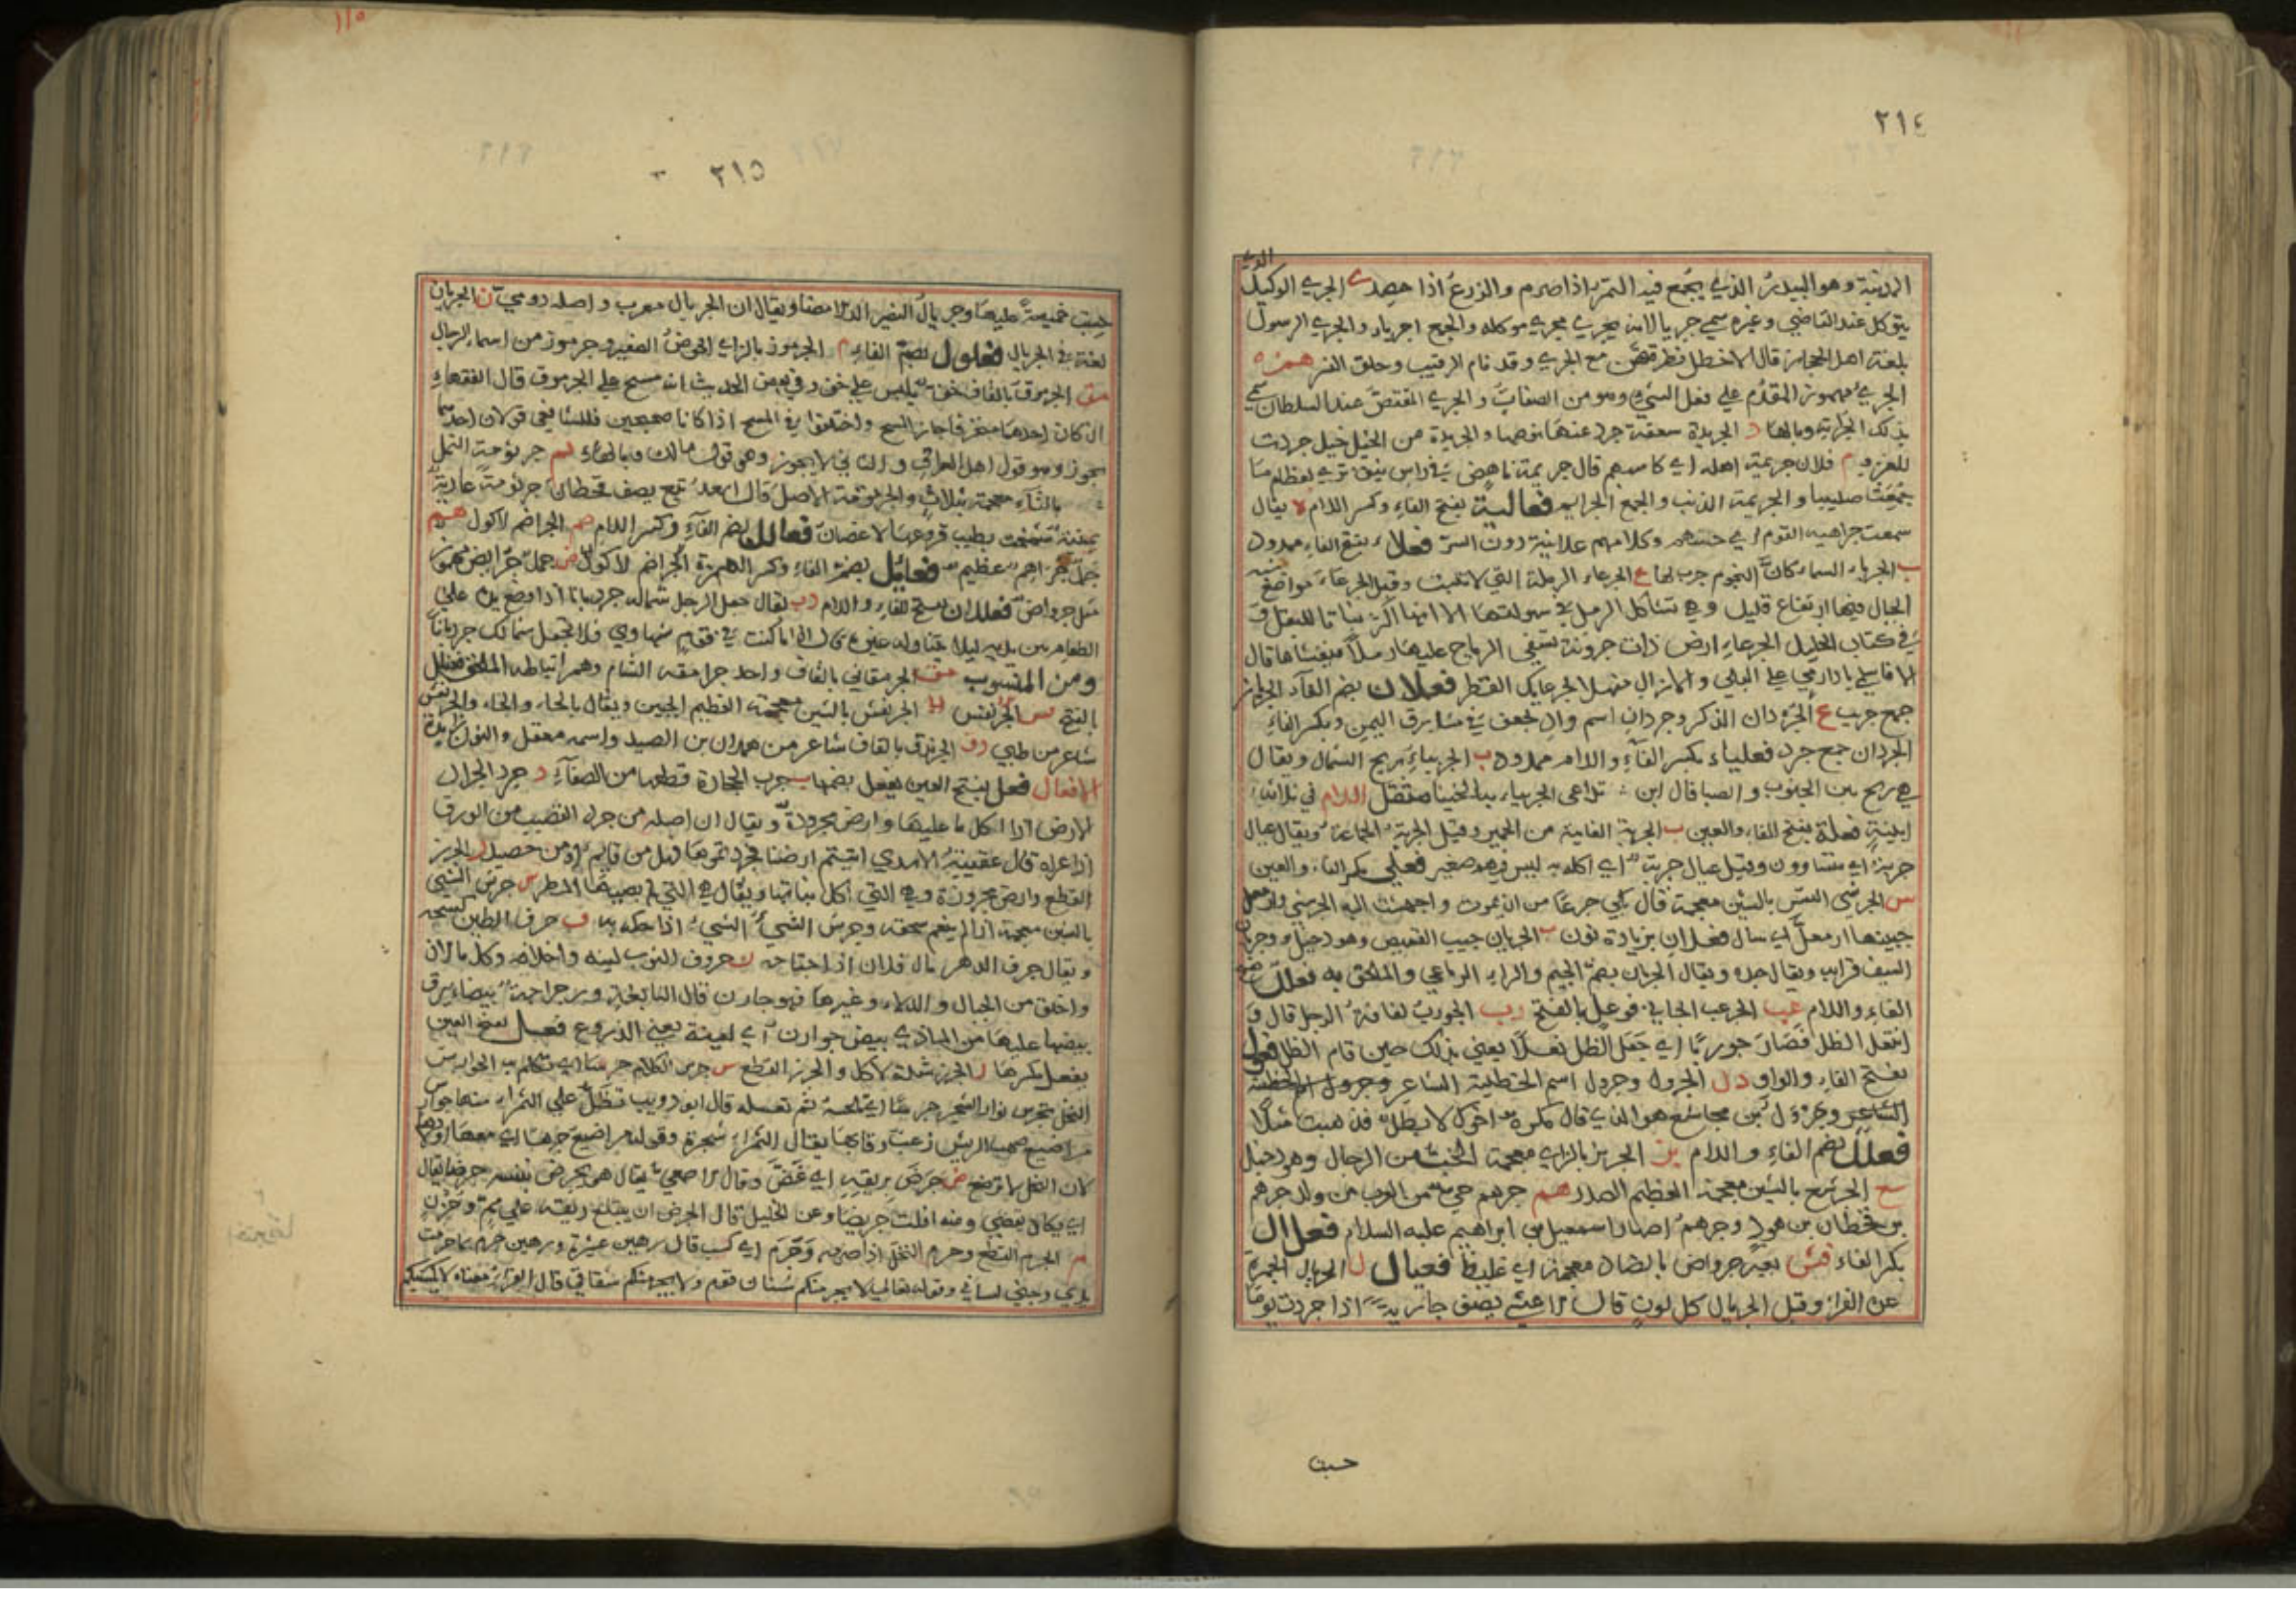 ٢١٤
الذي
المدينة وهو البيدر الذي يجمع فيه التمر اذا صرم والزرع اذا حصد ي الجري الوكيل
يتوكل عند القاضي وغيره سمي جريا لانه يجري مجري موكله والجمع اجرياء والجري الرسول
بلغة اهل الحجاز قال الاخطل مع الجري وقد نام الرقيب وحلق النسر همزه
الجريء مهموز المقدم علي فعل الشيء وهو من الصفات و الجري عند السلطان سمي
بذلك وبالهاء د الجريدة سعفة جرد عنها خوصها والجريدة من الخيل خيل جردت
للغزو م فلان جريمة اهله اي كاسبهم قال جريمة ناهض في راس نيق تري لعظام ما
جمعت صليبا والجريمة الذنب والجمع الجرايم فعالية بفتح الفاء وكسر اللام ه يقال
سمعت جراهية القوم اي وكلامهم علانية دون السر فعلاء بفتح الفاء ممدود
ب الجرباء السماء كأن النجوم جرب لها ع الجرعاء الرملة التي لا تنبت وقيل الجرعاء مواضع
الجبال فيها ارتفاع قليل وهي تشاكل الرمل في سهولتها الا انها اكثر نباتا للبقل و
في كتاب الخليل الجرعاء ارض ذات حزونة تسفي الرياح عليها رملا فيغشاها قال
الا فاسلمي يا دار مي علي البلي ولا زال منهلا بجرعايك القطر فعلان بضم الفاء
جمع جريب ع الجردان الذكر وجردان اسم واد في مشارق اليمن وبكسر الفاء
الجردان جمع جرد فعلياء بكسر الفاء واللام ممدود ب الجربياء ريح الشمال ويقال
هي ريح بين الجنوب والصبا قال ابن مثقل اللام في ثلاثة
ابنية فعلة بفتح الفاء والعين ب الجربة العانية من الحمير وقيل الجربة الجماعة ويقال عيال
جربة اي متساوون وقيل عيال جربة اي اكلة ليس فيهم صغير فعلي بكسر الفاء والعين
س الجرشي النفس بالشين معجمة قال بكي جزعا من ان يموت واجهشت اليه الجرشي
جبينها ارمعل اي سال فعلان بزيادة نون ب الجربان جيب القميص وهو دخيل وجربان
السيف قرابه ويقال حده ويقال الجربان بضم الجيم والراء الرباعي والملحق به فعلل بفتح
الفاء واللام عب الجرعب الجافي فوعل بالفتح رب الجورب لفافة الرجل قال
انتعل الظل فصار جوربا اي جعل الظل نعلا يعني بذلك حين قام الظل فعول
بفتح الفاء والواو دل الجرول وجرول اسم الحطيئة الشاعر وجرول
وجرول بن مجاشع هو الذي قال مكره اخوك لا بطل فذهبت مثلا
فعلل بضم الفاء واللام بز الجربز بالزاي معجمة الخب من الرجال وهو دخيل
شع الجرشع بالشين معجمة العظيم الصدر هم جرهم حي من العرب من ولد جرهم
بن قحطان بن هود وجرهم اصهار اسمعيل بن ابراهيم عليه السلام فعلال
بكسر الفاء بعير جرواض بالضاد معجمة اي غليظ فعيال ل الجريال الحمرة
عن الفراء وقيل الجريال كل لون قال الاعشي يصف جارية اذا جردت يوما
حسبت
١١٥
٢١٥
حسبت خميصة عليها وجريال النضير الدلامصا ويقال ان الجريال معرب واصله رومي ن الجريان
لغة في الجريال فعلول بضم الفاء م الجرموز بالزاي الحوض الصغير وجرموز من اسماء الرجال
مق الجرموق بالقاف خف يلبس علي خف وفي بعض الحديث انه مسح علي الجرموق قال الفقهاء
ان كان احدهما منخرقا جاز المسح واختلفوا في المسح اذا كانا صحيحين فللشافعي قولان احدهما
يجوز وهو قول اهل العراق والثاني لا يجوز وهو قول مالك وبالهاء ثم جرثومة النمل
بالثاء معجمة بثلاث والجرثومة الاصل قال اسعد تبع يصف قحطان جرثومة عادية
بطيب فروعها الاغصان فعالل بضم الفاء وكسر اللام ضم الجراضم الاكول هم
جمل جراهم عظيم فعائل بضم الفاء وكسر الهمزة الجرائض الاكول ض جمل جرايض مهموز
مثل جرواض فعللان بفتح الفاء واللام دب يقال جعل الرجل شماله جردبانا اذا وضع يده علي
الطعام بين يديه ليلا يتناوله غيره قال اذا ما كنت في قوم شهاوي فلا تجعل شمالك جردبانا
ومن المنسوب مق الجرمقاني بالقاف واحد جرامقة الشام وهم انباطه الملحق فعنلل
بالفتح الجرنفش بالشين معجمة العظيم الجنبين ويقال بالحاء والخاء والجرنفس
شاعر من طي دق الجرندق بالقاف شاعر من همدان بن الصيد واسمه معقل والنون زايدة
الافعال فعل بفتح العين يفعل بضمها ب جرب الحجارة قطعها من الصفاء د جرد الجراد
الارض اذا اكل ما عليها وارض مجرودة ويقال ان اصله من جرد القضيب من الورق
اذا عراه قال عقيبة الاسدي اكلتم ارضنا فجردتموها فهل من قايم او من حصيد ز الجرز
القطع وارض مجروزة وهي التي اكل نباتها ويقال هي التي لم يصبها المطر س جرش الشيء
بالشين معجمة اذا لم ينعم سحقه وجرش الشيء الشيء اذا حكه به ف جرف الطين كسحه
ويقال جرف الدهر مال فلان اذا اجتاحه ن جرون الثوب لينه واخلاقه وكل ما لان
واخلق من الحبال والدلاء وغيرها فهو جارن قال النابغة
بيضها عليها من الماذي بيض جوارن اي لينة يعني الدروع فعل بفتح العين
يفعل بكسرها ز الجرز شدة الاكل والجرز القطع س جرس الكلام جرسا اي تكلم به الجوارس
النحل تجرس نوار الشجر جرسا اي تلحسه ثم تعسله قال ابو ذويب تظل علي الثمراء منها جوارس
مراضيع صهب الريش زغب رقابها يقال الثمراء شجرة وقوله مراضيع
لان النحل لا ترضع ض جرض بريقه اي غص وقال الاصمعي يقال هو يجرض بنفسه جرضا يقال
اي يكاد يقضي ومنه افلت جريضا وعن الخليل قال الجرض ان يبتلع ريقه علي هم وحزن
م الجرم القطع وجرم النخل اذا صرمه وجرم اي كسب قال رهين عشيرة ورهين جرم بما جرمت
يدي وجني لساني وقوله تعالي لا يجرمنكم شنان قوم ولا يجرمنكم شقاقي قال الفراء معناه لا يكسبنكم